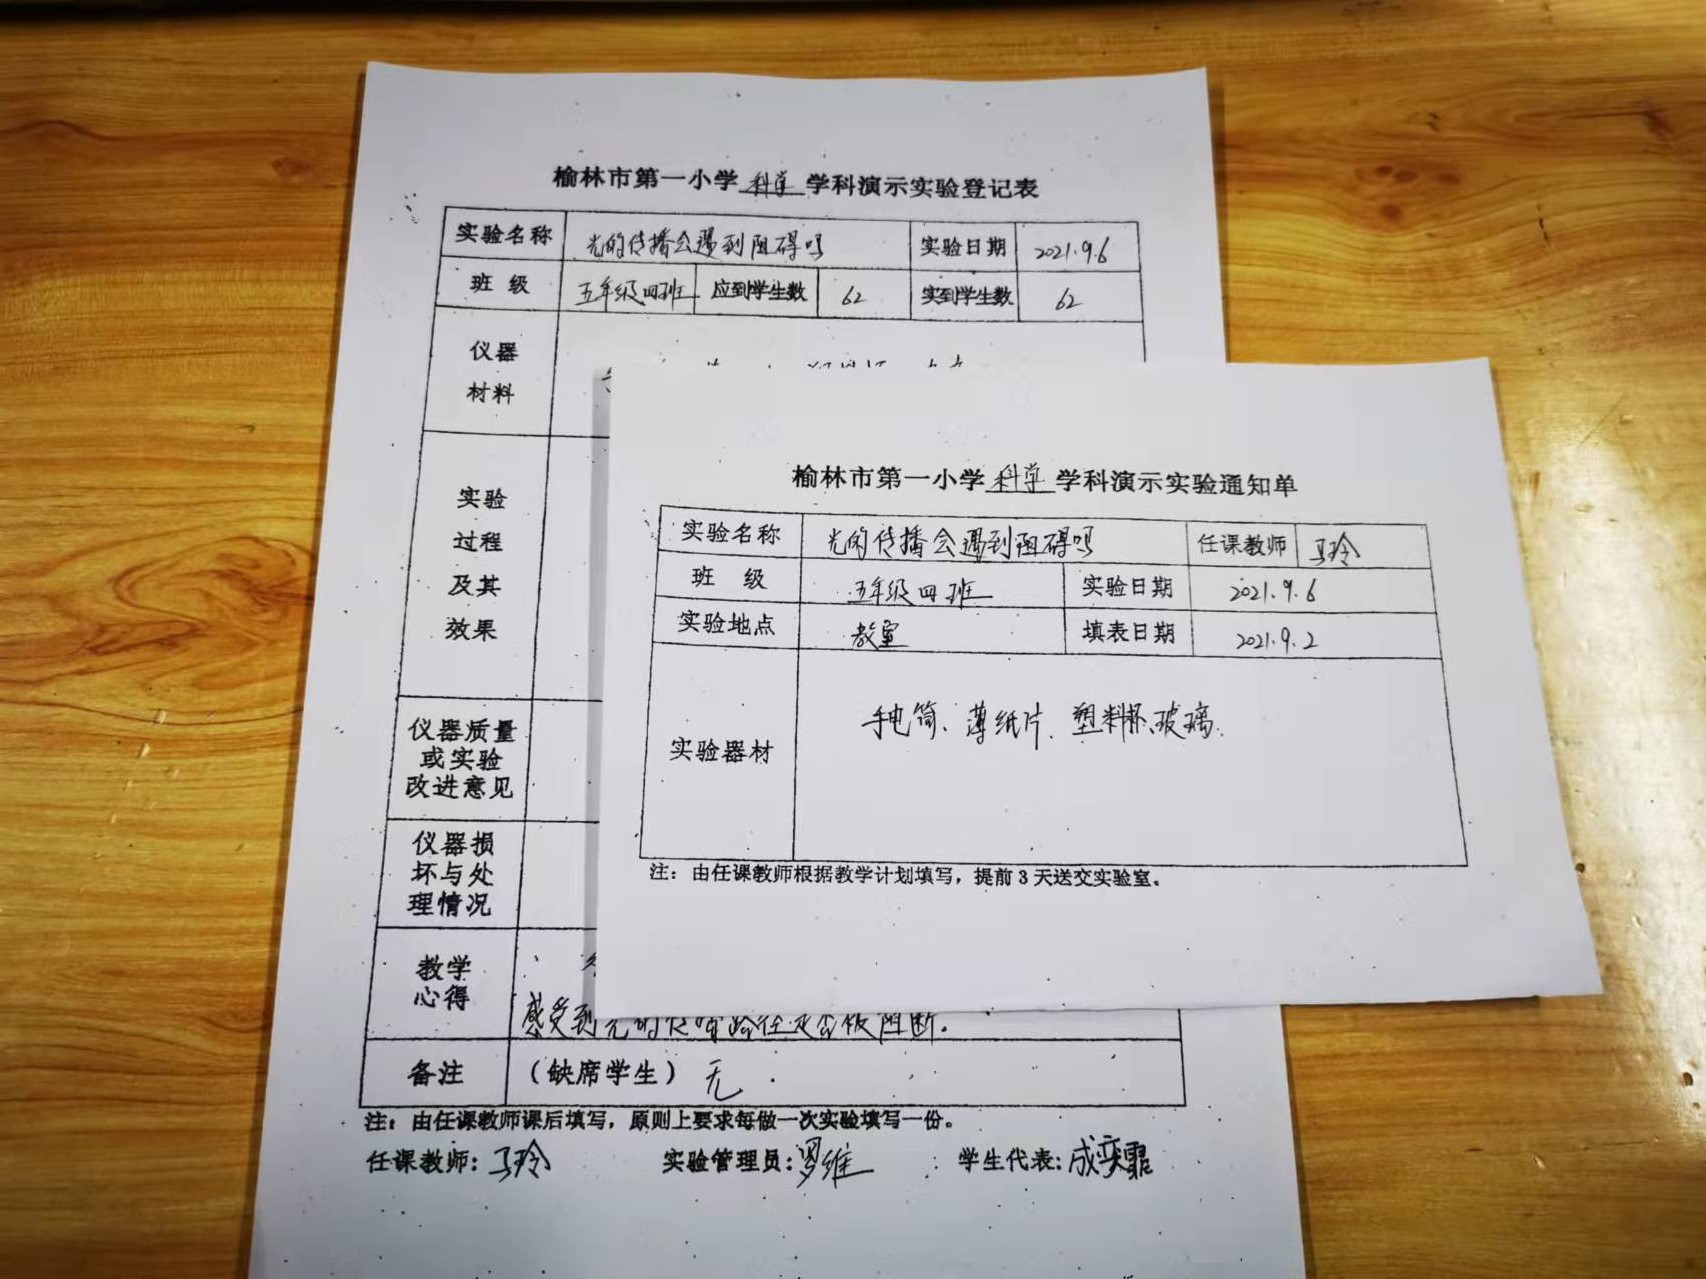 榆林市第一小学 科学 学科演示实验登记表
实验名称 光的传播会遇到阻碍吗 实验日期 2021.9.6
班 级 五年级四班 应到学生数 62 实到学生数 62
仪器
材料
实验
过程
及其
效果
仪器质量
或实验
改进意见
仪器损
坏与处
理情况
教学
心得
感受到光的传播路径是否被阻断。
备注 (缺席学生) 无
注：由任课教师课后填写，原则上要求每做一次实验填写一份。
任课教师: 马玲 实验管理员: 罗维 学生代表: 成奕霏
榆林市第一小学 科学 学科演示实验通知单
实验名称 光的传播会遇到阻碍吗 任课教师 马玲
班 级 五年级四班 实验日期 2021.9.6
实验地点 教室 填表日期 2021.9.2
实验器材 手电筒、薄纸片、塑料杯、玻璃.
注：由任课教师根据教学计划填写，提前 3 天送交实验室。